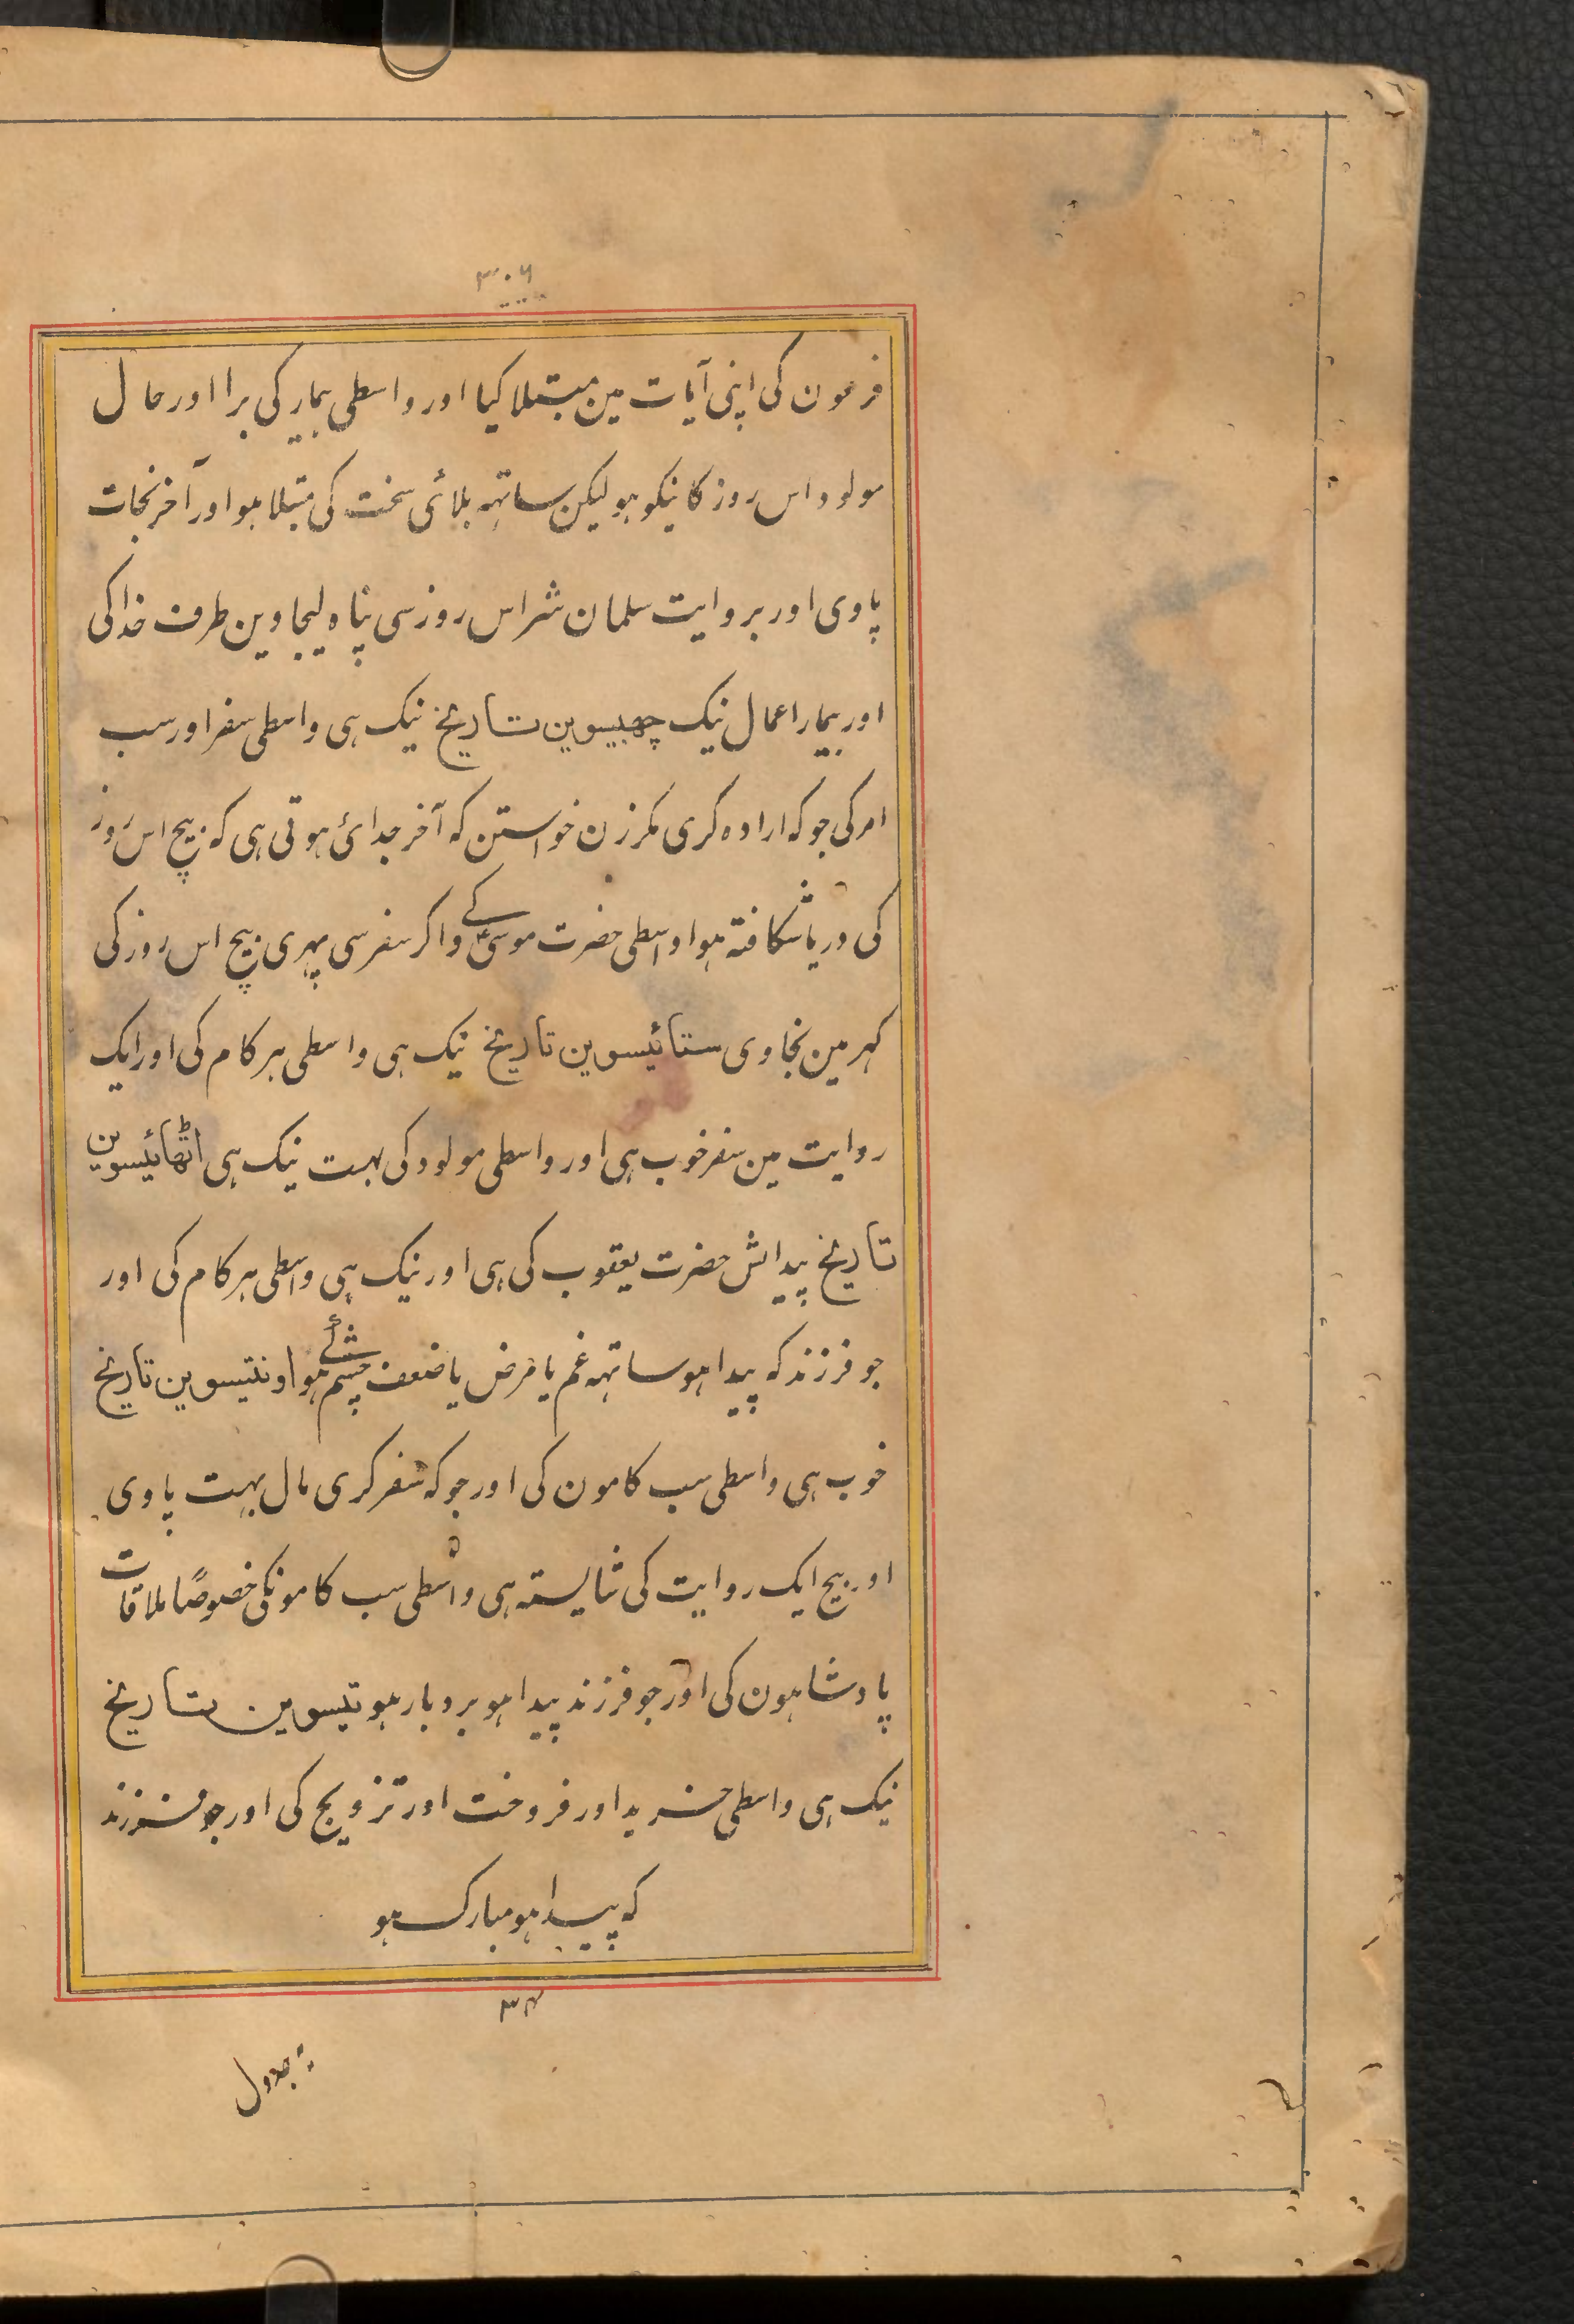 ۳۰۶
فرعون کی اپنی آیات مین مبتلا کیا اور واسطی بیمار کی برا اور حال
مولود اس روز کا نیکو ہو لیکن ساتہہ بلائی سخت کی مبتلا ہو اور آخر نجات
پاوی اور بروایت سلمان شر اس روز سی پناہ لیجاوین طرف خدا کی
اور بیمار اعمال نیک چھبیسوین تاریخ نیک ہی واسطی سفر اور سب
امر کی جو کہ ارادہ کری مکر زن خواستن کہ آخر جدائی ہوتی ہی کہ بیچ اس روز
کی دریا شکافتہ ہوا واسطی حضرت موسیٰ کے و اکر سفر سی پہری بیچ اس روز کی
کہر مین نجاوی ستائیسوین تاریخ نیک ہی واسطی ہر کام کی اور ایک
روایت مین سفر خوب ہی اور واسطی مولود کی بہت نیک ہی اٹھائیسوین
تاریخ پیدایش حضرت یعقوب کی ہی اور نیک ہی واسطی ہر کام کی اور
جو فرزند کہ پیدا ہو ساتہہ غم یا مرض یا ضعف چشم ہو اونتیسوین تاریخ
خوب ہی واسطی سب کامون کی اور جو کہ سفر کری مال بہت پاوی
اور بیچ ایک روایت کی شایستہ ہی واسطی سب کامونکی خصوصًا ملاقات
پادشاہون کی اور جو فرزند پیدا ہو بردبار ہو تیسوین تاریخ
نیک ہی واسطی خرید اور فروخت اور تزویج کی اور جو فرزند
کہ پیدا ہو مبارک ہو
جدول